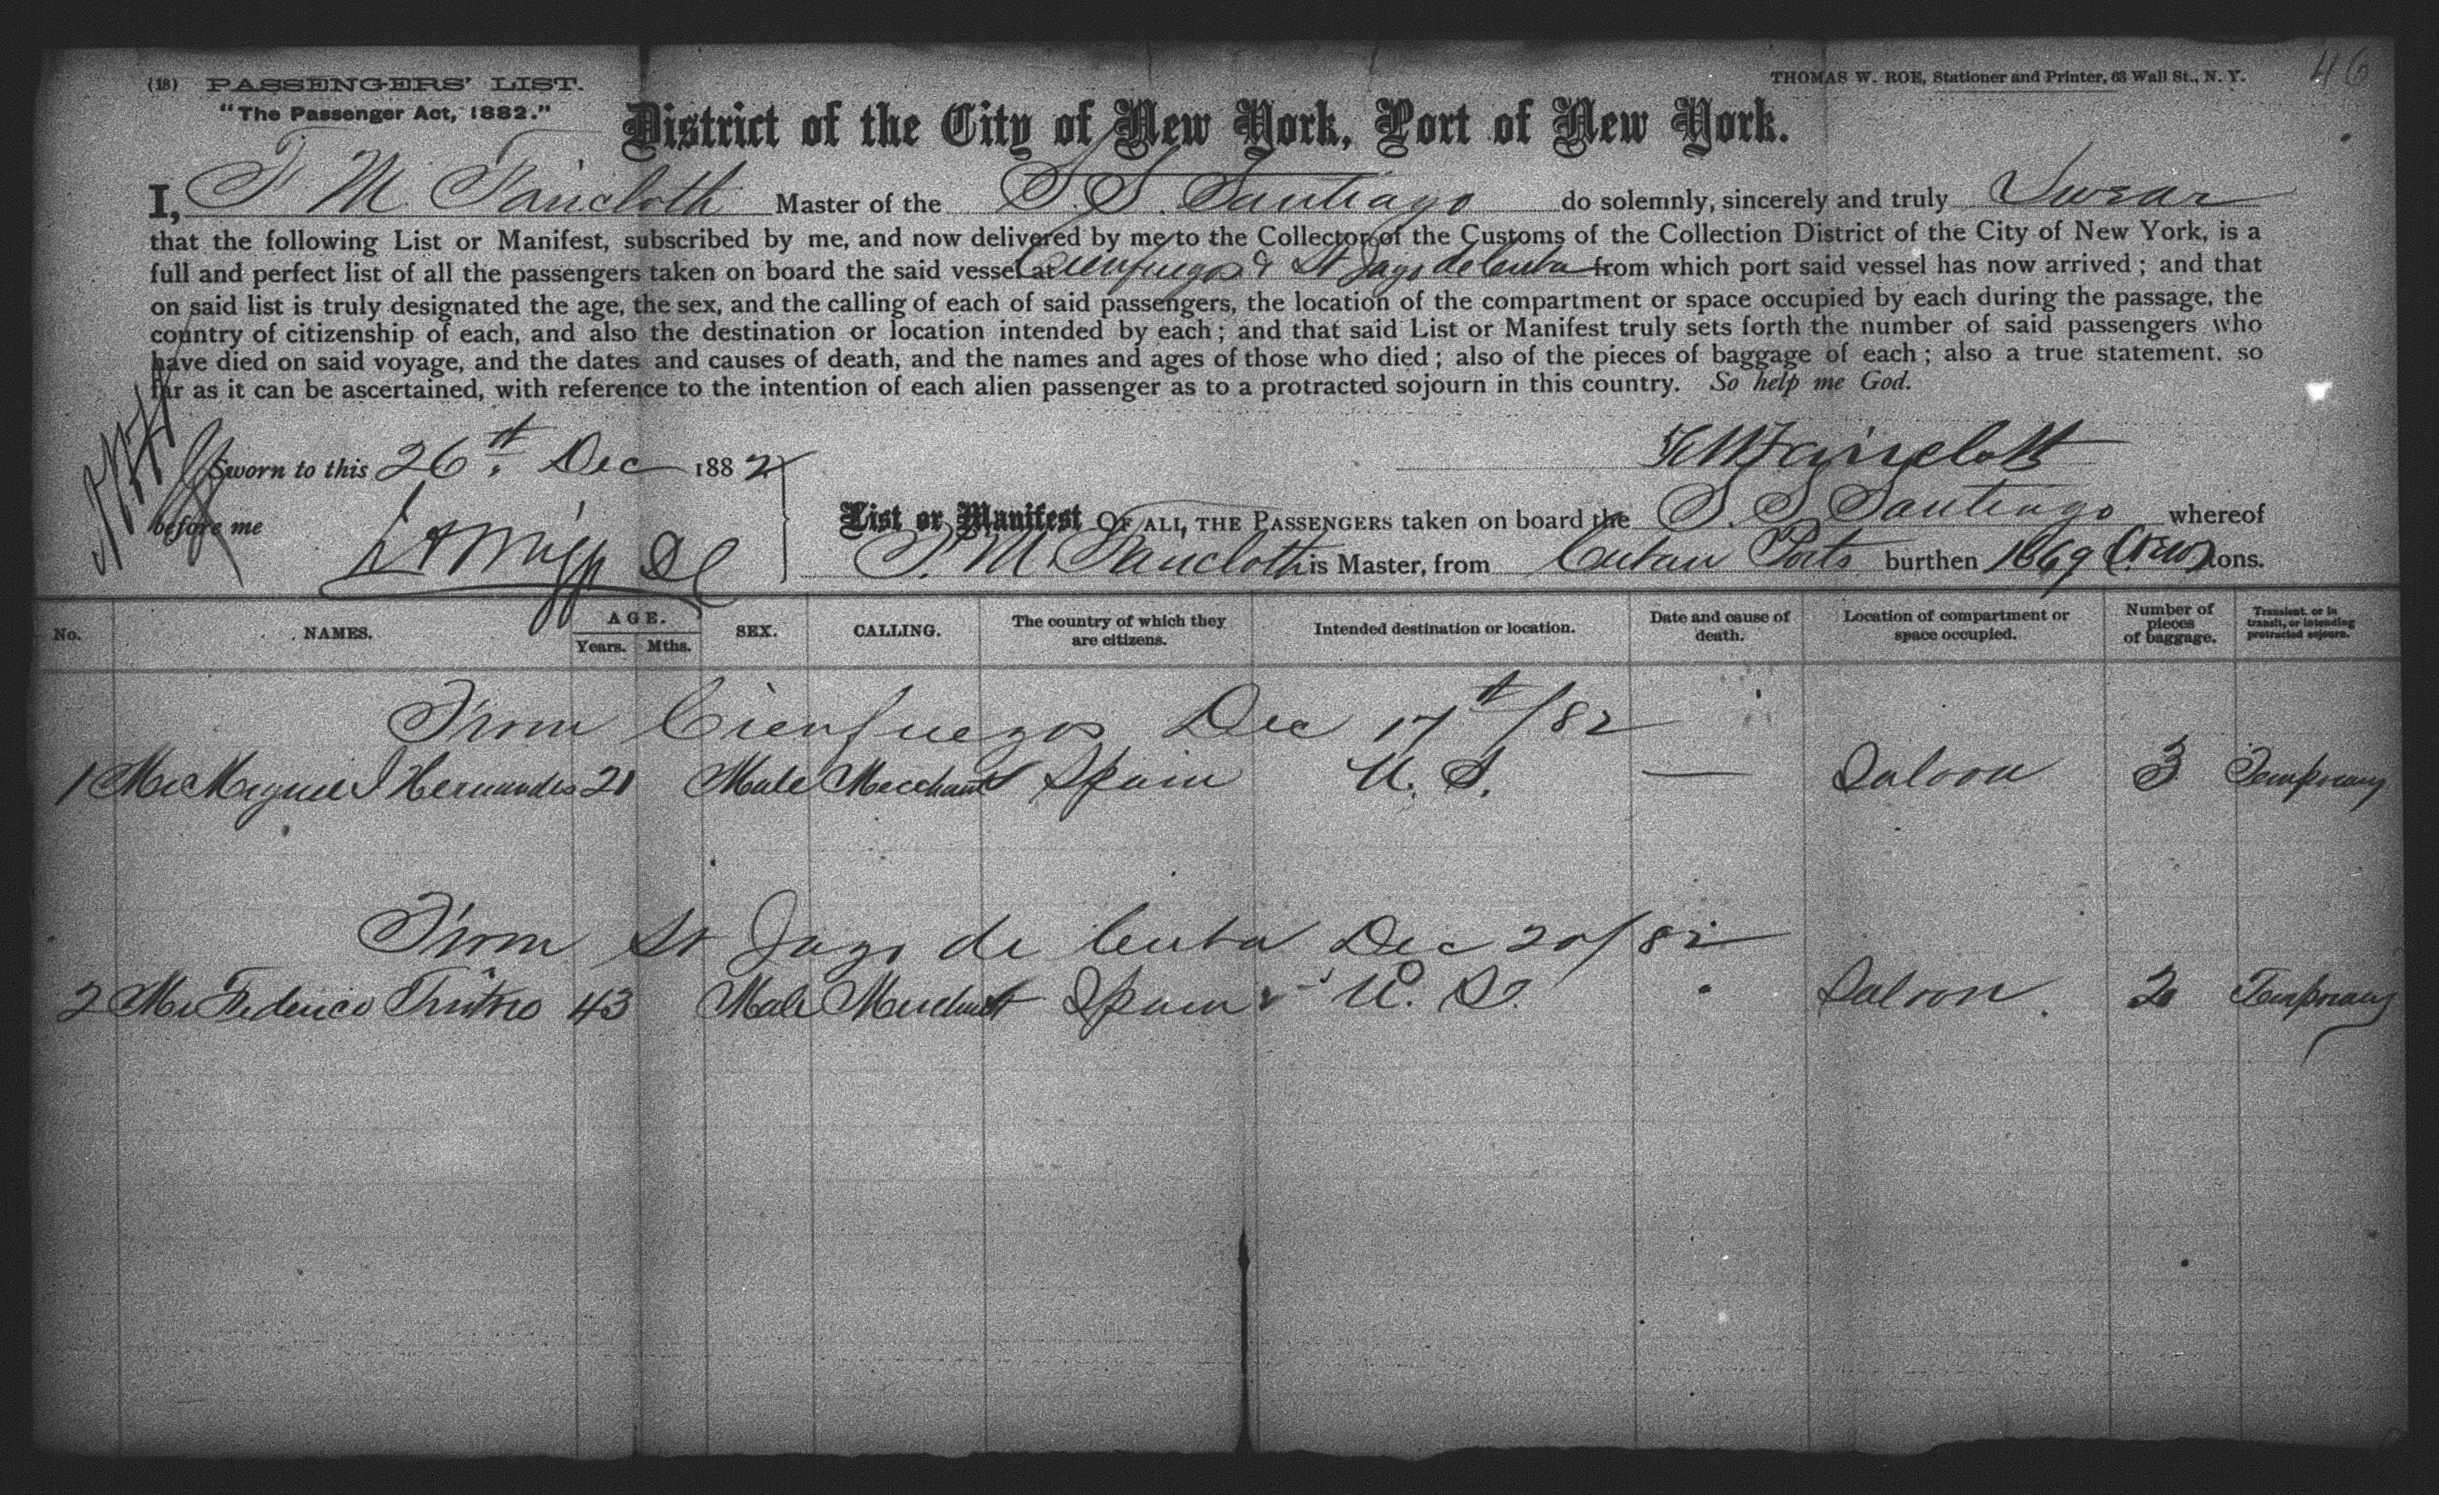 (18) PASSENGERS' LIST.
"The Passenger Act, 1882."
THOMAS W. ROE, Stationer and Printer, 63 Wall St., N. Y.
46
District of the City of New York, Port of New York.
I, F. M. Faircloth Master of the S.S. Santiago do solemnly, sincerely and truly Swear
that the following List or Manifest, subscribed by me, and now delivered by me to the Collector of the Customs of the Collection District of the City of New York, is a
full and perfect list of all the passengers taken on board the said vessel at Cienfuegos & St Jago de Cuba from which port said vessel has now arrived; and that
on said list is truly designated the age, the sex, and the calling of each of said passengers, the location of the compartment or space occupied by each during the passage, the
country of citizenship of each, and also the destination or location intended by each; and that said List or Manifest truly sets forth the number of said passengers who
have died on said voyage, and the dates and causes of death, and the names and ages of those who died; also of the pieces of baggage of each; also a true statement. so
far as it can be ascertained, with reference to the intention of each alien passenger as to a protracted sojourn in this country. So help me God.
Sworn to this 26th Dec 1882
before me
F M Faircloth
List or Manifest OF ALL THE PASSENGERS taken on board the S. S Santiago whereof
F. M Faircloth is Master, from Cuban Ports burthen 1669 (New) tons.
No. NAMES. AGE. Years. Mths. SEX. CALLING. The country of which they are citizens. Intended destination or location. Date and cause of death. Location of compartment or space occupied. Number of pieces of baggage. Transient, or in transit, or intending protracted sojourn.
From Cienfuegos Dec 17th/82
1 Mr Miguel J Hernandes 21 Male Merchant Spain U. S. — Saloon 3 Temporary
From St Jago de Cuba Dec 20/82
2 Mr Federico 43 Male Merchant Spain U. S. Saloon. 2 Temporary